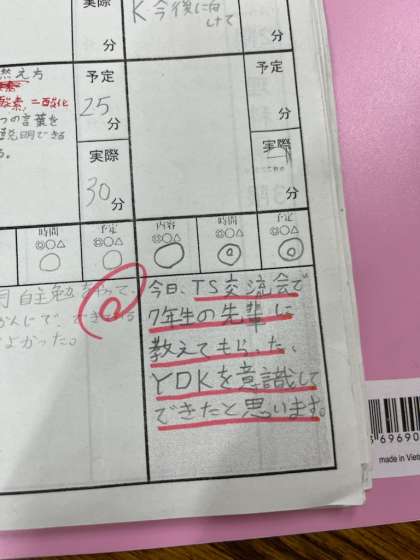 実際
分
K 今後に向
けて
分
燃え方
酸素、二酸化
つの言葉を
説明できる
る。
予定
25
分
実際
30
分
予定
分
実際
分
時間
◎○△
予定
◎○△
内容
◎○△
時間
◎○△
予定
◎○△
自主勉
よかった。
今日、TS交流会で
7年生の先輩に
教えてもらった、
YDKを意識して
できたと思います。
made in Viet